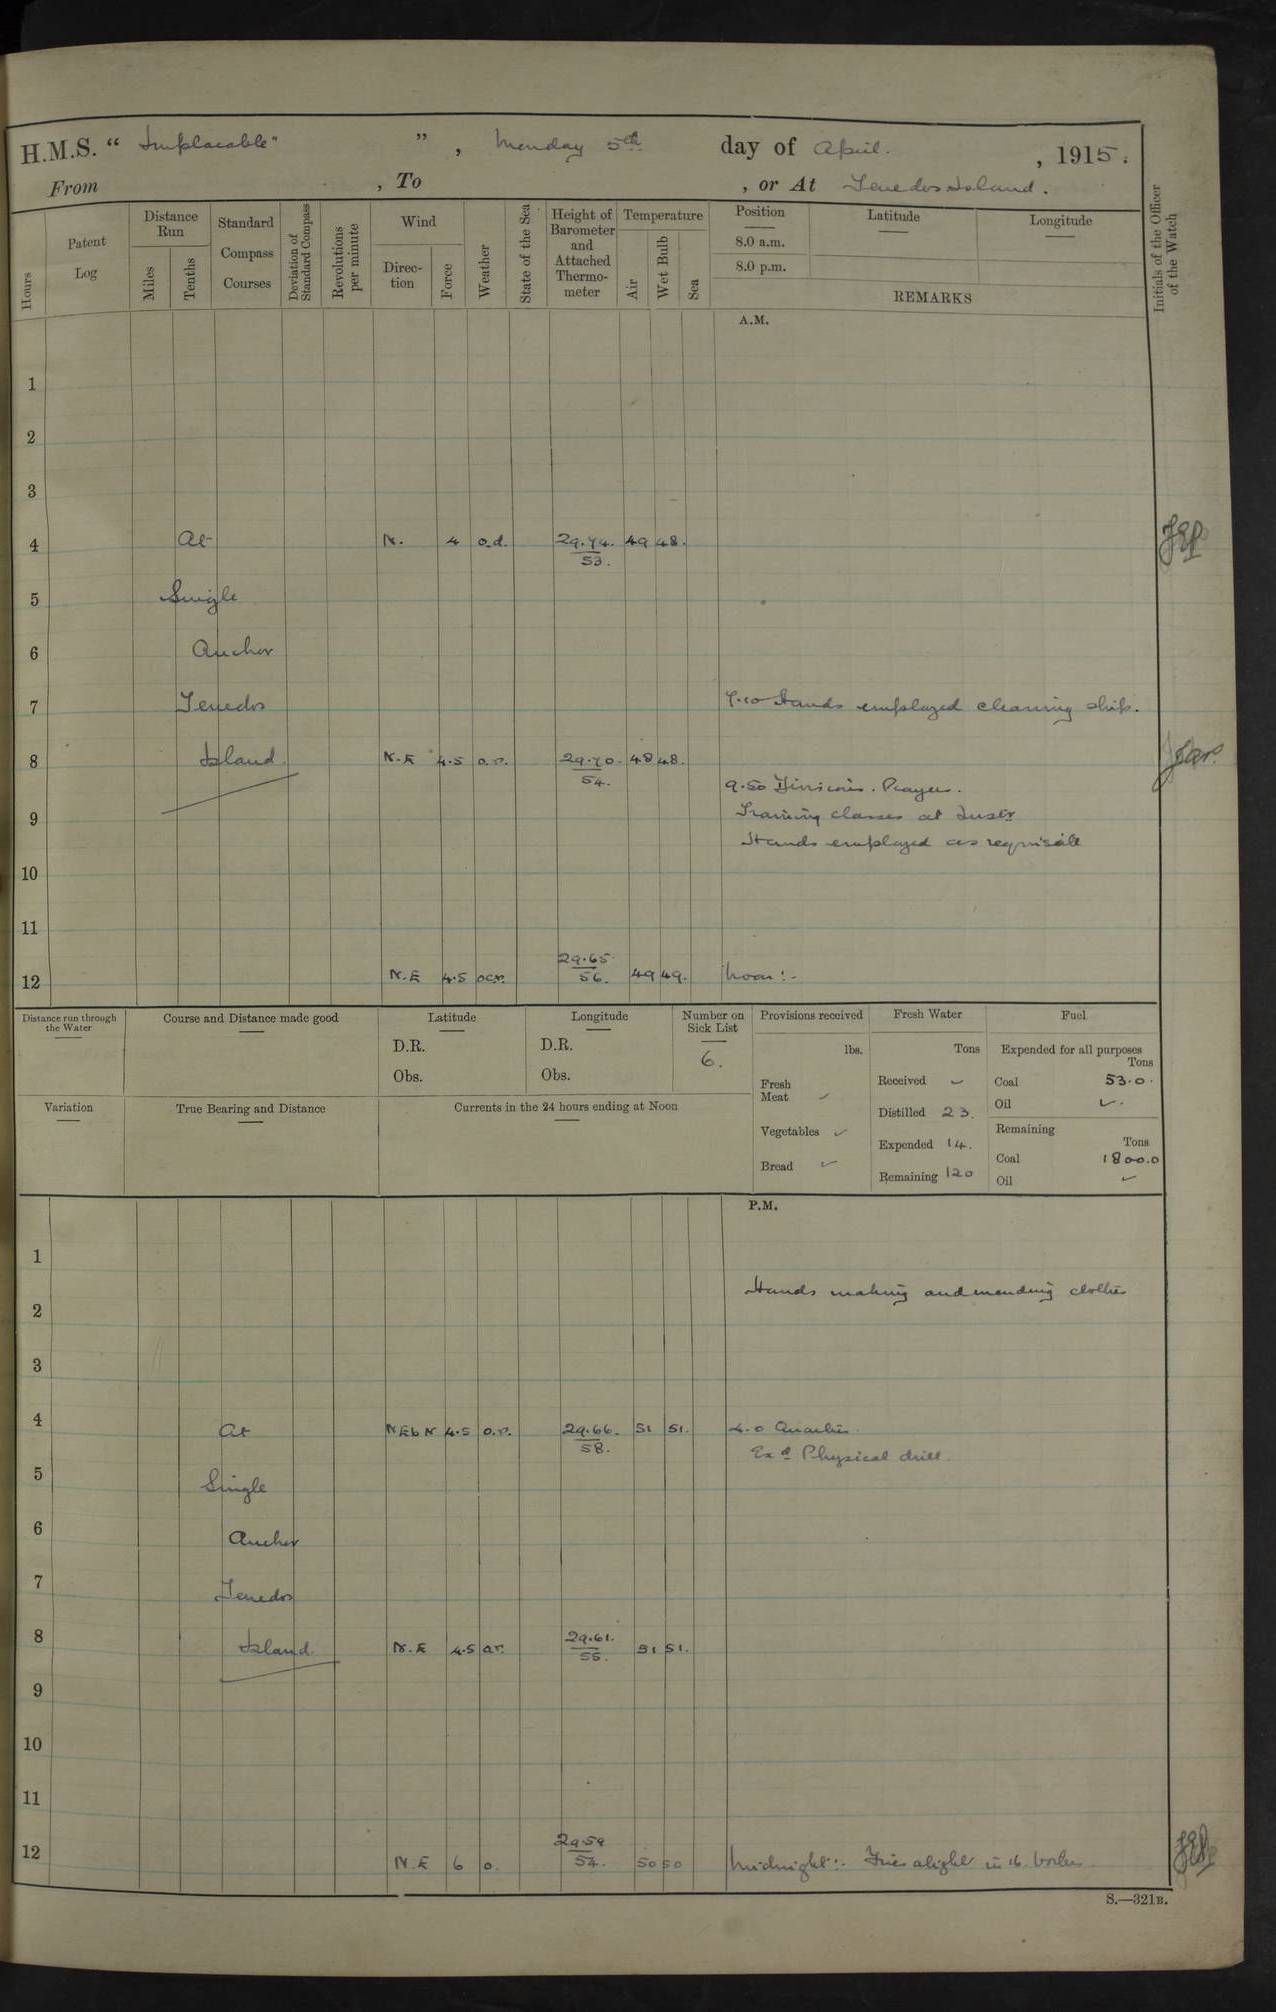 H.M.S. " Implacable" ", Monday 5th day of April. , 1915.
From , To , or At Tenedos Island.
Hours
Patent Log
Distance Run
Miles
Tenths
Standard Compass Courses
Deviation of Standard Compass
Revolutions per minute
Wind
Direc-tion
Force
Weather
State of the Sea
Height of Barometer and Attached Thermo-meter
Temperature
Air
Wet Bulb
Sea
Position
8.0 a.m.
8.0 p.m.
Latitude
Longitude
REMARKS
Initials of the Officer of the Watch
A.M.
1
2
3
4 At N. 4 o.d. 29.74. 49 48.
53.
5 Single
6 Anchor
7 Tenedos 7.10 Hands employed cleaning ship.
8 Island N.E 4.5 o.r. 29.70. 48 48.
54.
9.50 Divisions. Prayers.
9 Training classes at Instr
Hands employed as requisite
10
11
29.65
12 N.E 4.5 ocr. 56. 49 49. Noon:-
Distance run through the Water
Course and Distance made good
Latitude
D.R.
Obs.
Longitude
D.R.
Obs.
Number on Sick List
6.
Provisions received
lbs.
Fresh Meat ✓
Vegetables ✓
Bread ✓
Fresh Water
Tons
Received ✓
Distilled 23.
Expended 14.
Remaining 120
Fuel
Expended for all purposes
Tons
Coal 53.0.
Oil ✓.
Remaining
Tons
Coal 1800.0
Oil ✓
Variation
True Bearing and Distance
Currents in the 24 hours ending at Noon
P.M.
1
Hands making and mending clothes
2
3
4 At NEbN 4.5 o.r. 29.66. 51 51. 4.0 Quarters.
58.
Exd Physical drill.
5 Single
6 Anchor
7 Tenedos
8 Island N.E 4.5 or. 29.61. 51 51.
55.
9
10
11
29.59
12 N.E 6 o. 54. 50 50 Midnight:- Fires alight in 16 boilers
S.—321B.